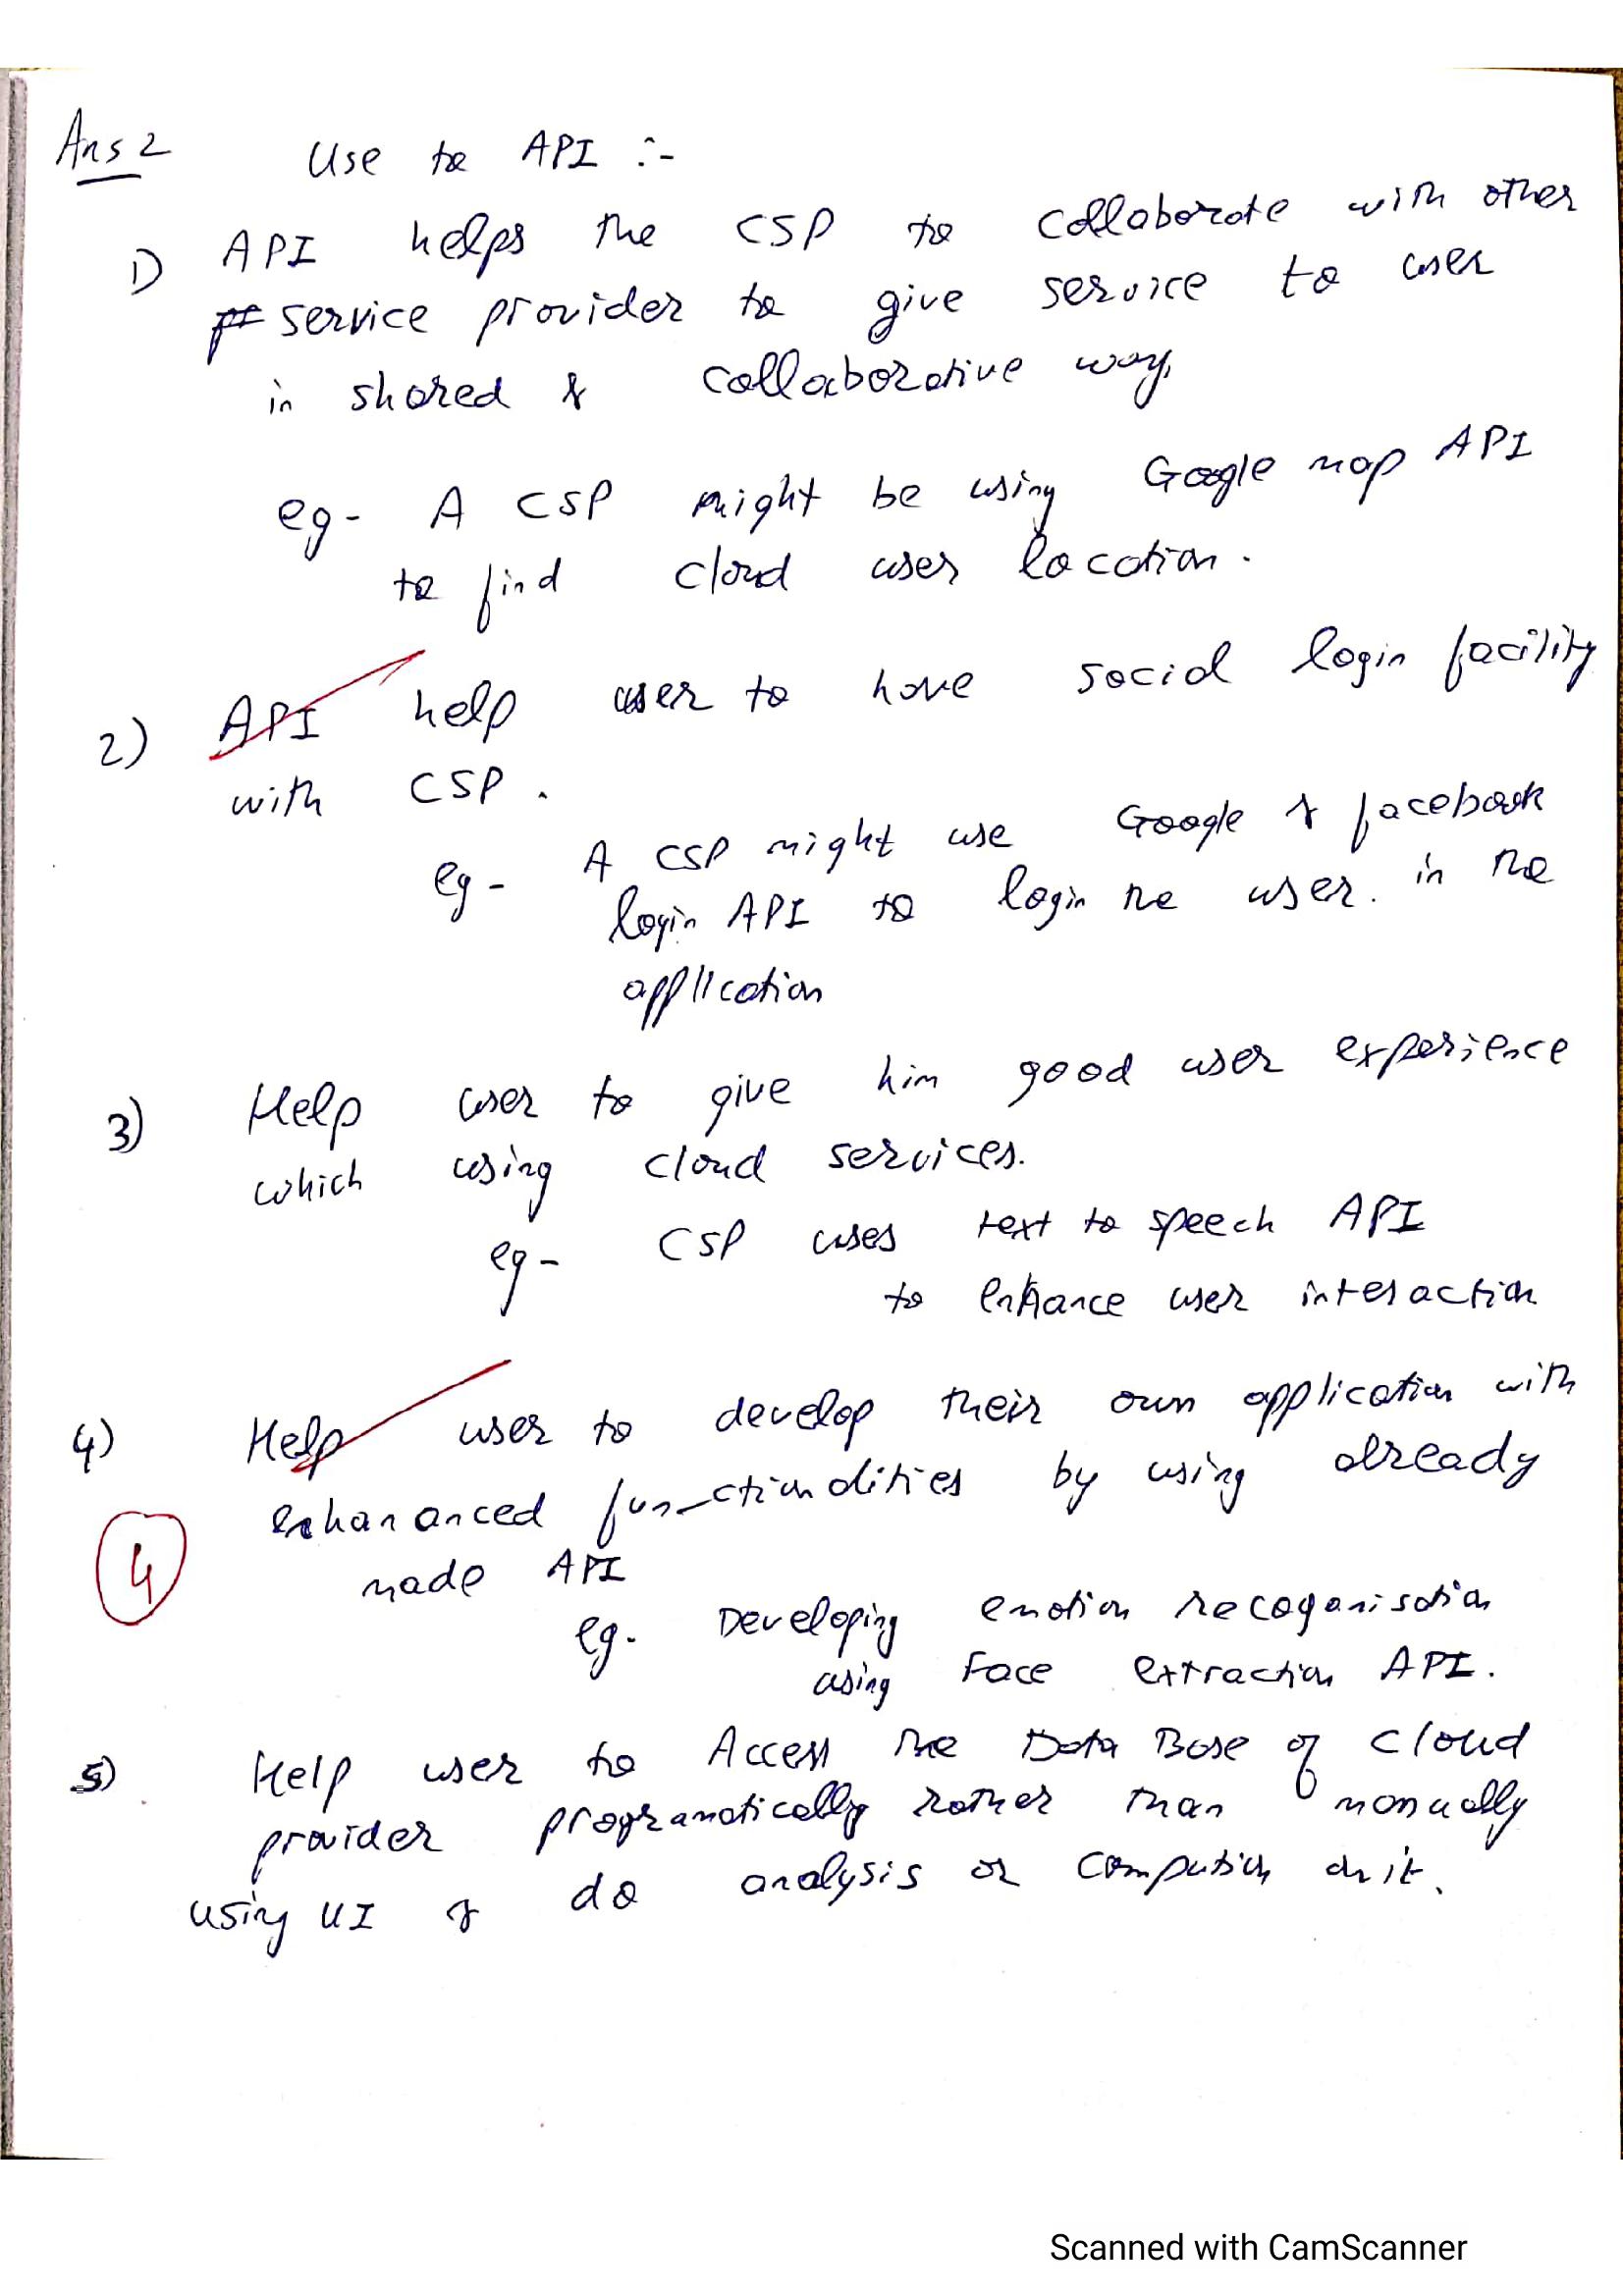 Ans 2 Use to API :-
1) API helps the CSP to collaborate with other
service provider to give service to user
in shared & collaborative way.
eg - A CSP might be using Google map API
to find cloud user location.
2) API help user to have social login facility
with CSP.
eg - A CSP might use Google & facebook
login API to login the user. in the
application
3) Help user to give him good user experience
which using cloud services.
eg - CSP uses text to speech API
to enhance user interaction
4) Help user to develop their own application with
enhananced functionalities by using already
4 made API
eg. Developing emotion recoganisation
using Face extraction API.
5) Help user to Access the Data Base of cloud
provider programatically rather than manually
using UI & do analysis or compution on it.
Scanned with CamScanner